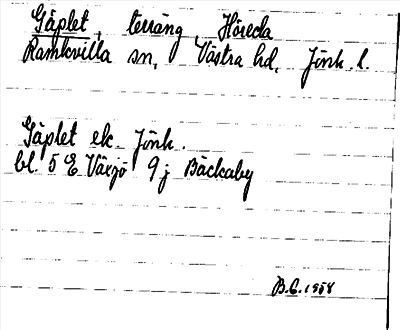 Gäplet, terräng, Höreda
Ramkvilla sn, Västra hd, Jönk. l.
Gäplet ek. Jönk.
bl. 5 E Växjö 9 j Bäckaby
B.G. 1958